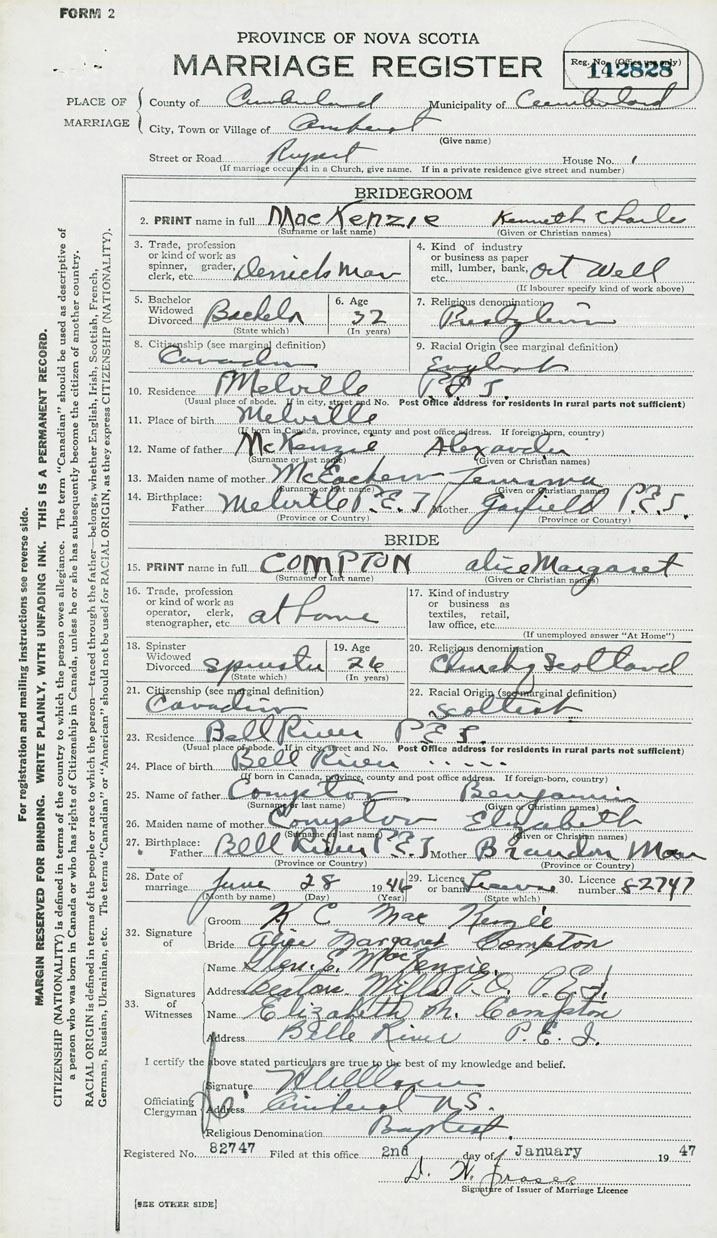 FORM 2
PROVINCE OF NOVA SCOTIA
MARRIAGE REGISTER
Reg. No. (Office use only)
142828
PLACE OF MARRIAGE
County of Cumberland Municipality of Cumberland
City, Town or Village of Amherst
(Give name)
Street or Road Rupert House No.
(If marriage occurred in a Church, give name. If in a private residence give street and number)
BRIDEGROOM
2. PRINT name in full MacKenzie Kenneth Charles
(Surname or last name) (Given or Christian names)
3. Trade, profession or kind of work as spinner, grader, clerk, etc. Derrick Man
4. Kind of industry or business as paper mill, lumber, bank, etc. Oil Well
(If labourer specify kind of work above)
5. Bachelor Widowed Divorced Bachelor
(State which)
6. Age 32
(In years)
7. Religious denomination Presbyterian
8. Citizenship (see marginal definition) Canadian
9. Racial Origin (see marginal definition) English
10. Residence Melville P.E.I.
(Usual place of abode. If in city, street and No. Post Office address for residents in rural parts not sufficient)
11. Place of birth Melville
(If born in Canada, province, county and post office address. If foreign-born, country)
12. Name of father McKenzie Alexander
(Surname or last name) (Given or Christian names)
13. Maiden name of mother McEachern Jemima
(Surname or last name) (Given or Christian names)
14. Birthplace: Father Melville P.E.I Mother Garfield P.E.I.
(Province or Country) (Province or Country)
BRIDE
15. PRINT name in full COMPTON alice Margaret
(Surname or last name) (Given or Christian names)
16. Trade, profession or kind of work as operator, clerk, stenographer, etc. at home
17. Kind of industry or business as textiles, retail, law office, etc.
(If unemployed answer "At Home")
18. Spinster Widowed Divorced Spinster
(State which)
19. Age 26
(In years)
20. Religious denomination Church of Scotland
21. Citizenship (see marginal definition) Canadian
22. Racial Origin (see marginal definition) Scottish
23. Residence Bell River P.E.I.
(Usual place of abode. If in city, street and No. Post Office address for residents in rural parts not sufficient)
24. Place of birth Bell River
(If born in Canada, province, county and post office address. If foreign-born, country)
25. Name of father Compton Benjamin
(Surname or last name) (Given or Christian names)
26. Maiden name of mother Compston Elizabeth
(Surname or last name) (Given or Christian names)
27. Birthplace: Father Bell River P.E.I Mother Brandon Man
(Province or Country) (Province or Country)
28. Date of marriage June 28 1946
(Month by name) (Day) (Year)
29. Licence or banns License
(State which)
30. Licence number 82747
32. Signature of
Groom K C MacKenzie
Bride Alice Margaret Compton
33. Signatures of Witnesses
Name Glen. E. MacKenzie.
Address Heatons Mills P.O. P.E.I.
Name Elizabeth M. Compton
Address Belle River P.E.I.
I certify the above stated particulars are true to the best of my knowledge and belief.
Officiating Clergyman
Signature
Address Amherst N.S.
Religious Denomination Baptist.
Registered No. 82747 Filed at this office 2nd day of January 1947
D. H. Fraser
Signature of Issuer of Marriage Licence
[SEE OTHER SIDE]
For registration and mailing instructions see reverse side.
MARGIN RESERVED FOR BINDING. WRITE PLAINLY, WITH UNFADING INK. THIS IS A PERMANENT RECORD.
CITIZENSHIP (NATIONALITY) is defined in terms of the country to which the person owes allegiance. The term "Canadian" should be used as descriptive of
a person who was born in Canada or who has rights of Citizenship in Canada, unless he or she has subsequently become the citizen of another country.
RACIAL ORIGIN is defined in terms of the people or race to which the person—traced through the father—belongs, whether English, Irish, Scottish, French,
German, Russian, Ukrainian, etc. The terms "Canadian" or "American" should not be used for RACIAL ORIGIN, as they express CITIZENSHIP (NATIONALITY).